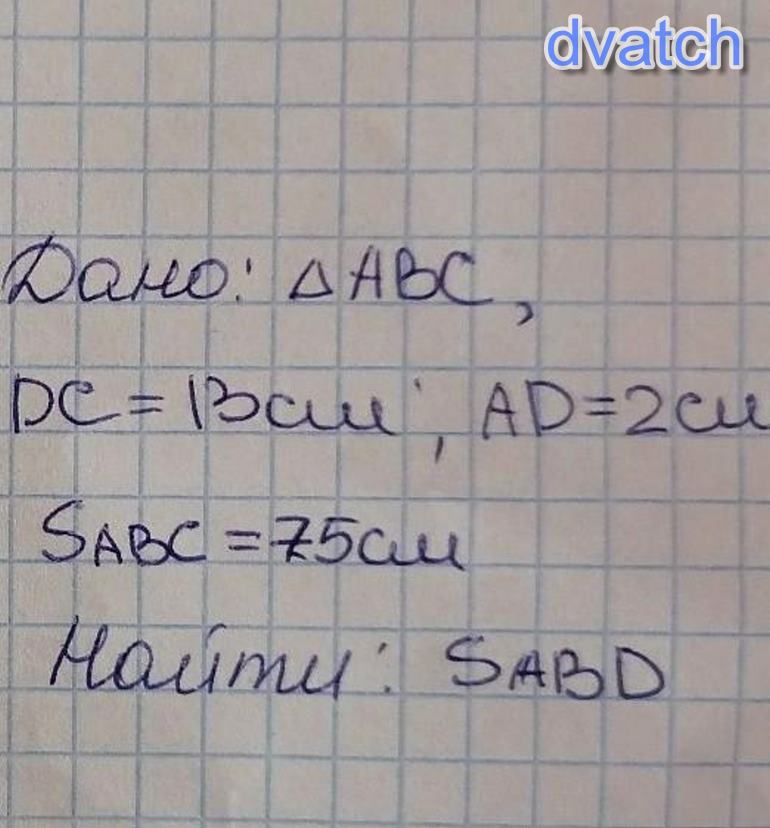 dvatch
Дано: △ABC,
DC = 13см, AD = 2см
SABC = 75см
Найти: SABD